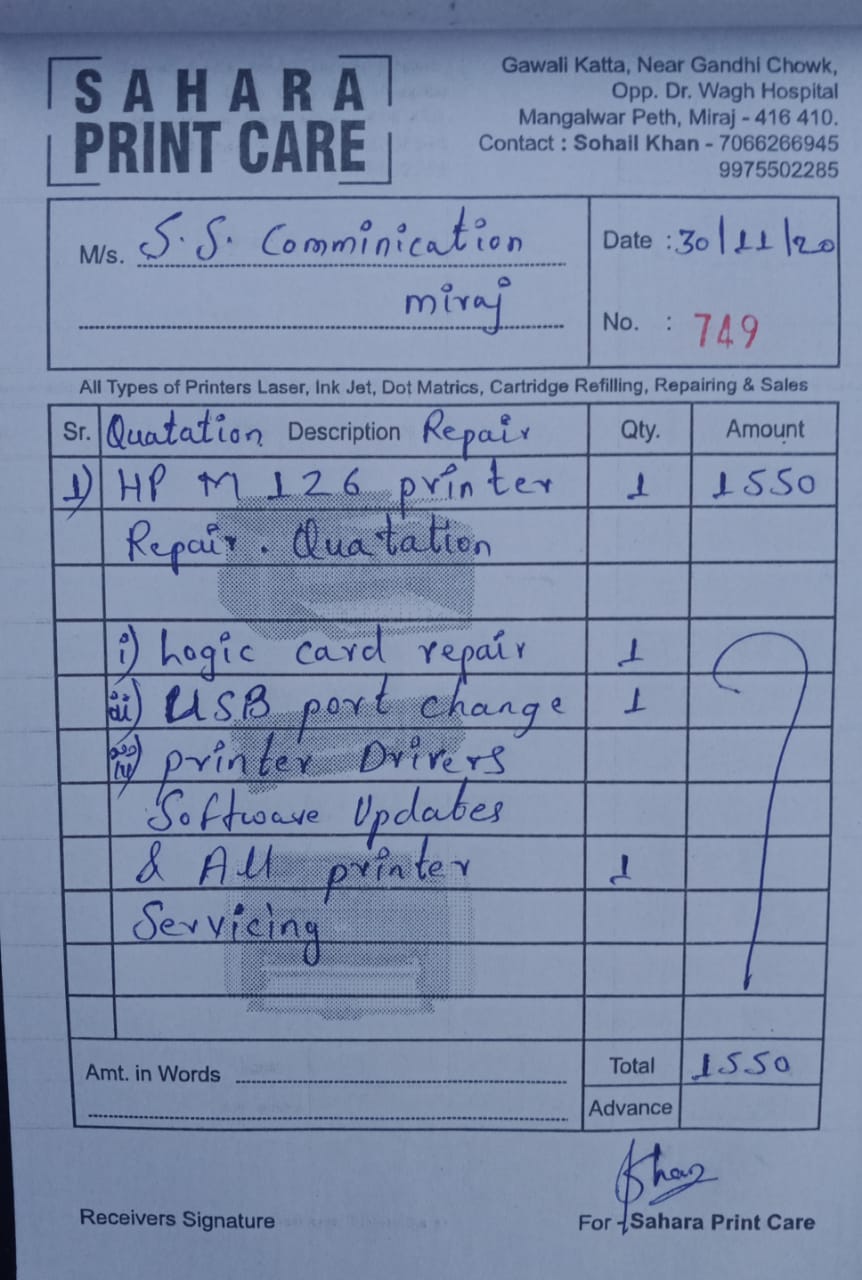 SAHARA
PRINT CARE
Gawali Katta, Near Gandhi Chowk,
Opp. Dr. Wagh Hospital
Mangalwar Peth, Miraj - 416 410.
Contact : Sohail Khan - 7066266945
9975502285
M/s. S.S. Comminication
miraj
Date : 30/11/20
No. : 749
All Types of Printers Laser, Ink Jet, Dot Matrics, Cartridge Refilling, Repairing & Sales
Sr. Quatation Description Repair Qty. Amount
1) HP M 126 printer 1 1550
Repair. Quatation
i) Logic card repair 1
ii) USB port change 1
iii) printer Drivers
Software Updates
& All printer 1
Servicing
Amt. in Words
Total 1550
Advance
Khan
Receivers Signature
For - Sahara Print Care